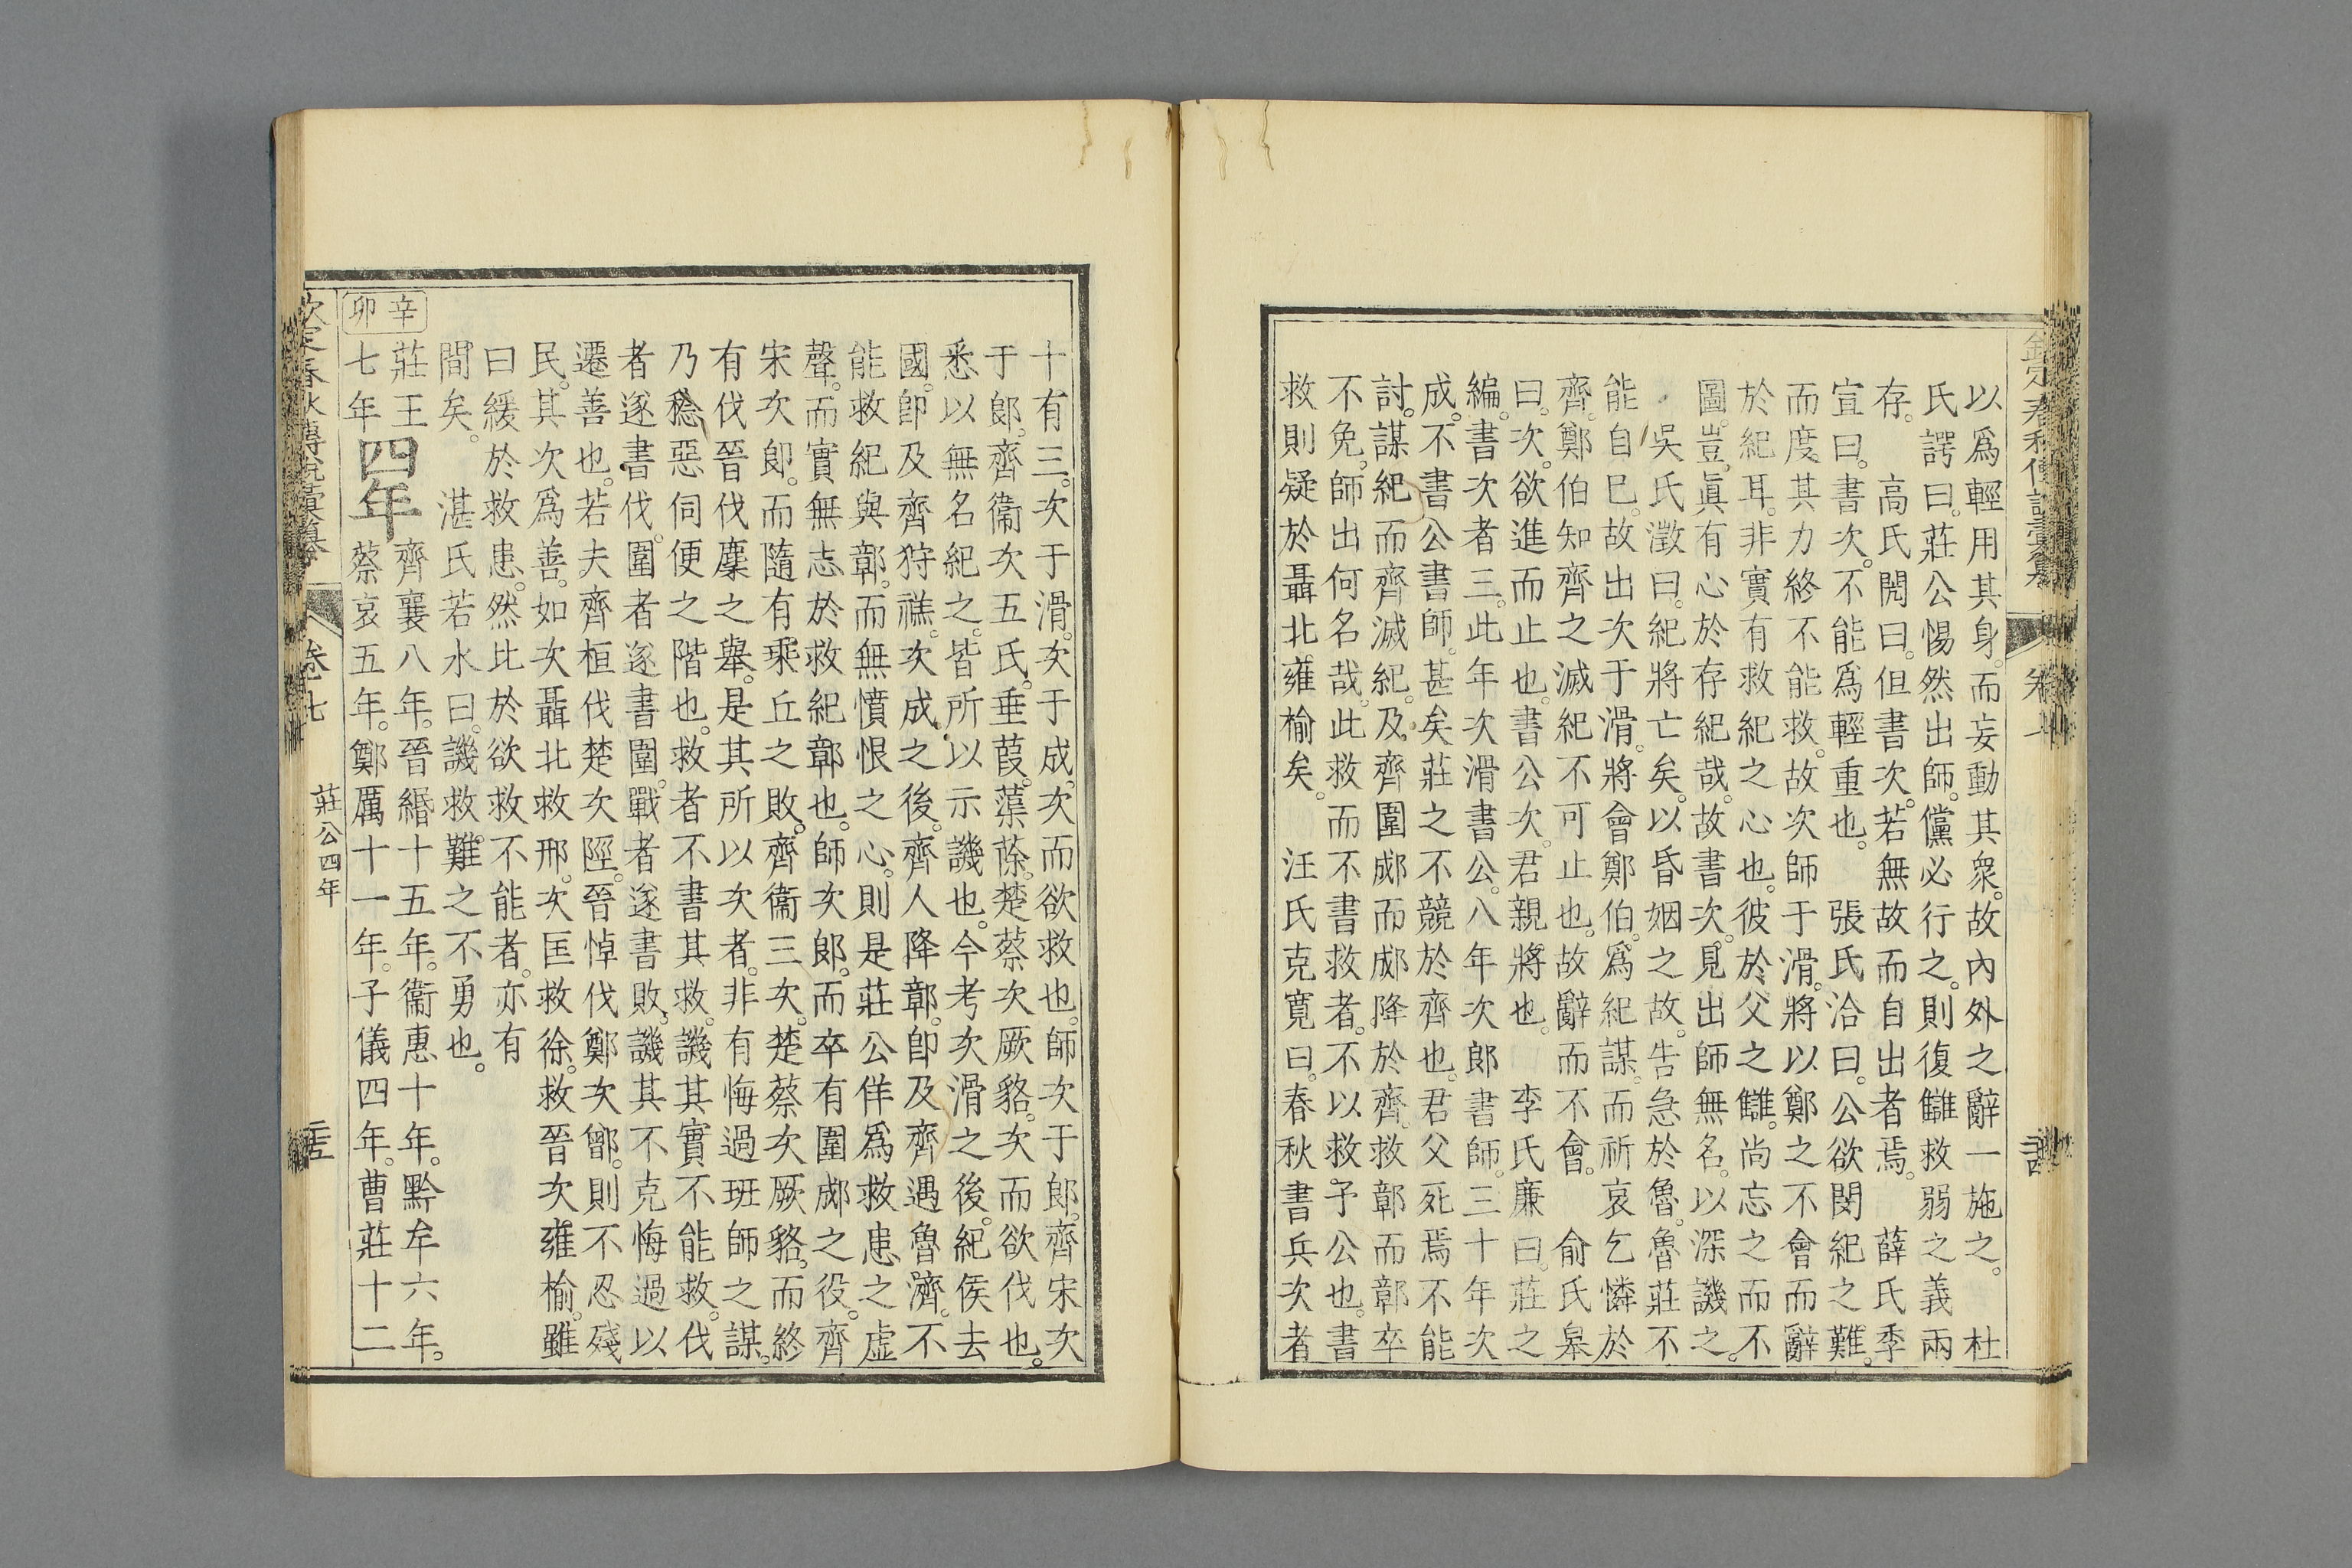 以爲輕用其身。而妄動其衆。故內外之辭一施之。 杜
氏諤曰。莊公惕然出師。儻必行之。則復讎救弱之義兩
存。 高氏閌曰。但書次。若無故而自出者焉。 薛氏季
宣曰。書次。不能爲輕重也。 張氏洽曰。公欲閔紀之難。
而度其力終不能救。故次師于滑。將以鄭之不會而辭
於紀耳。非實有救紀之心也。彼於父之讎。尚忘之而不
圖。豈眞有心於存紀哉。故書次。見出師無名。以深譏之。
吳氏澂曰。紀將亡矣。以昏姻之故。告急於魯。魯莊不
能自已。故出次于滑。將會鄭伯。爲紀謀。而祈哀乞憐於
齊。鄭伯知齊之滅紀不可止也。故辭而不會。 俞氏皋
曰。次。欲進而止也。書公次。君親將也。 李氏廉曰。莊之
編。書次者三。此年次滑書公。八年次郎書師。三十年次
成。不書公書師。甚矣莊之不競於齊也。君父死焉不能
討。謀紀而齊滅紀。及齊圍郕而郕降於齊。救鄣而鄣卒
不免。師出何名哉。此救而不書救者。不以救予公也。書
救則疑於聶北。雍榆矣。 汪氏克寬曰。春秋書兵次者
十有三。次于滑。次于成。次而欲救也。師次于郎。齊宋次
于郎。齊衞次五氏。垂葭。蕖蒢。楚蔡次厥貉。次而欲伐也。
悉以無名紀之。皆所以示譏也。今考次滑之後。紀侯去
國。卽及齊狩禚。次成之後。齊人降鄣。卽及齊遇魯濟。不
能救紀與鄣。而無憤恨之心。則是莊公佯爲救患之虛
聲。而實無志於救紀鄣也。師次郎。而卒有圍郕之役。齊
宋次郎。而隨有乘丘之敗。齊衞三次。楚蔡次厥貉。而終
有伐晉伐麇之舉。是其所以次者。非有悔過班師之謀。
乃稔惡伺便之階也。救者不書其救。譏其實不能救。伐
者遂書伐。圍者遂書圍。戰者遂書敗。譏其不克悔過以
遷善也。若夫齊桓伐楚次陘。晉悼伐鄭次鄫。則不忍殘
民。其次爲善。如次聶北救邢。次匡救徐。救晉次雍榆。雖
曰緩於救患。然比於欲救不能者。亦有
間矣。 湛氏若水曰。譏救難之不勇也。
辛
卯
莊王 齊襄八年。晉緡十五年。衞惠十年。黔牟六年。
七年 四年 蔡哀五年。鄭厲十一年。子儀四年。曹莊十二
卷七
莊公四年